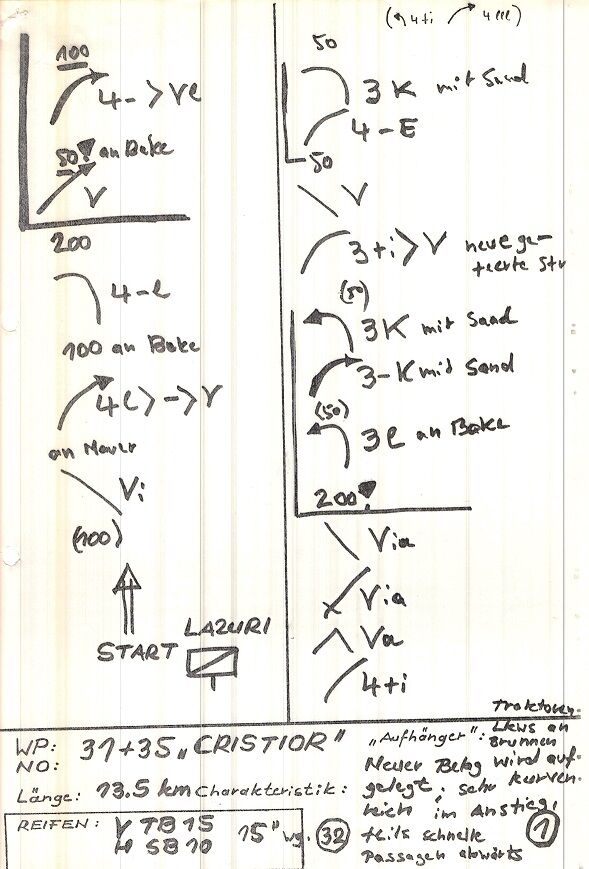 (4+i 4lll)
100
4-> Vl
50! an Bake
V
200
4-l
100 an Bake
4l>->V
an Mauer
Vi
(100)
LAZURI
START
50
3K mit Sand
4-E
50
V
3+i>V neue ge-
teerte Str
(50)
3K mit Sand
3-K mit Sand
(50)
3l an Bake
200!
Via
Via
Va
4+i
WP: 31+35 „CRISTIOR"
NO:
Länge: 13.5 km Charakteristik:
REIFEN: V TB 15
H SB 10
15" wg. 32
Traktoren-
„Aufhänger": Lkws an
Brunnen
Neuer Belag wird auf-
gelegt, sehr kurven-
reich im Anstieg,
teils schnelle
Passagen abwärts
1